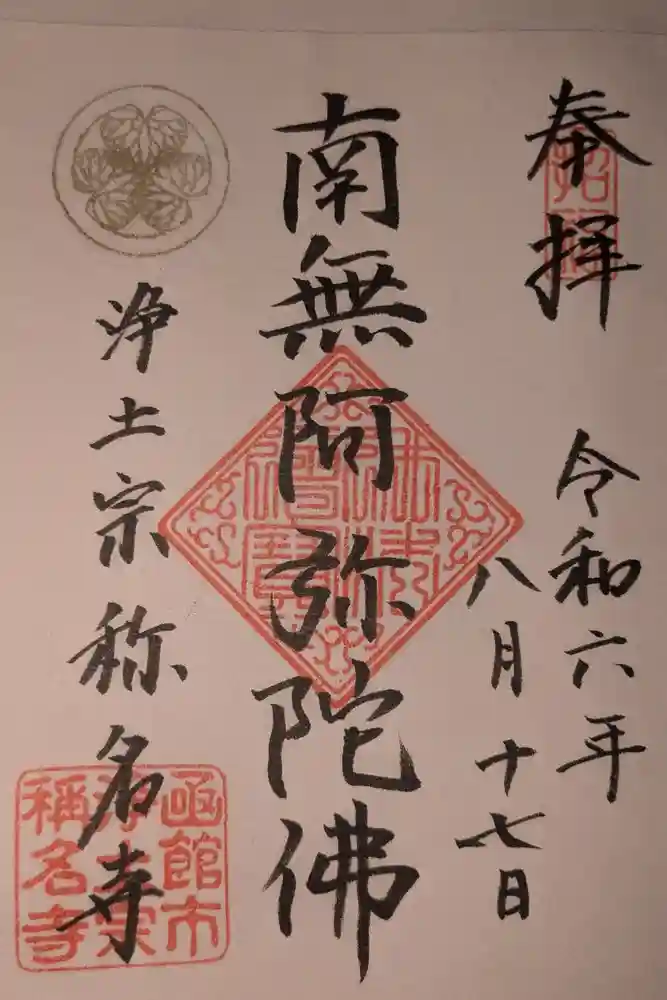 奉拝
令和六年
八月十七日
南無阿弥陀佛
浄土宗称名寺
佛法僧寳
函館市
浄土宗
稱名寺